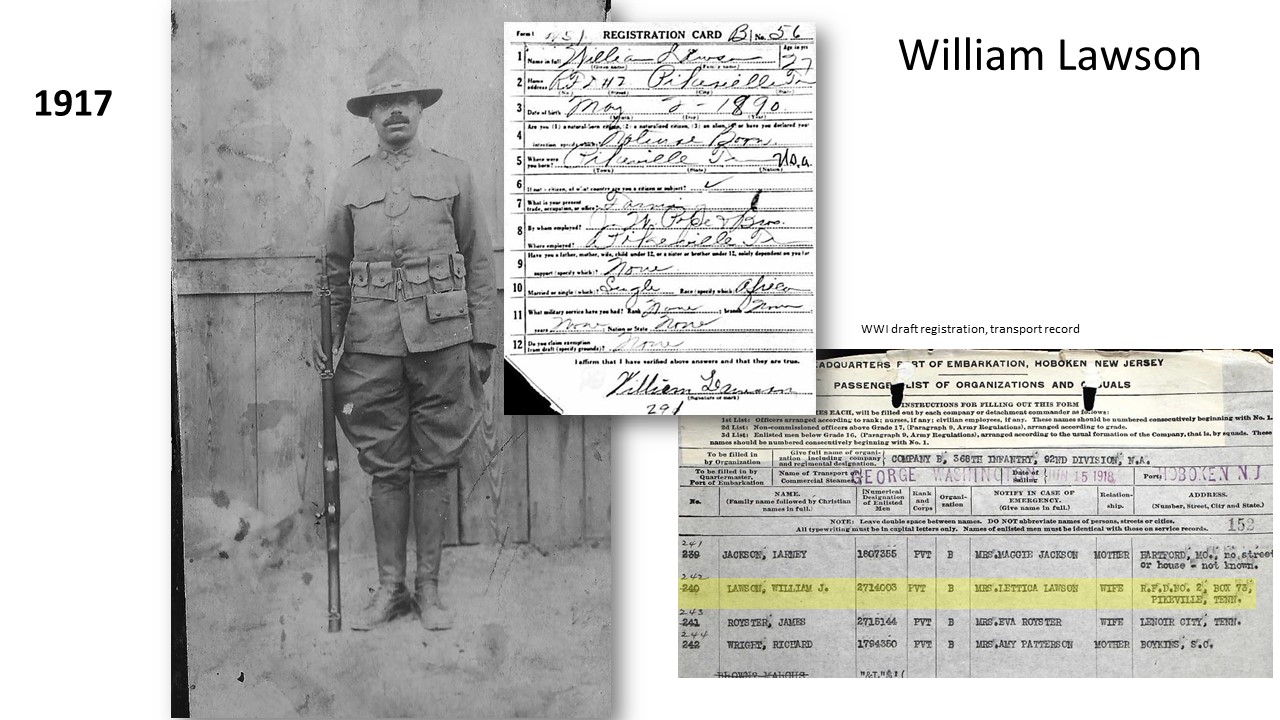 William Lawson
1917
Form 1 REGISTRATION CARD B No. 56
1 Name in full William Lawson Age in yrs 27
(Given name) (Family name)
2 Home address R F D #2 Pikeville Tn
(No.) (Street) (City) (State)
3 Date of birth May 2 - 1890
(Month) (Day) (Year)
Are you (1) a natural-born citizen, (2) a naturalized citizen, (3) an alien, (4) or have you declared your
4 intention (specify which)? Born
5 Where were you born? Pikeville Tn U.S.a.
(Town) (State) (Nation)
6 If not a citizen, of what country are you a citizen or subject?
7 What is your present trade, occupation, or office? Farming
8 By whom employed? Bros.
Where employed? Pikeville Tn
9 Have you a father, mother, wife, child under 12, or a sister or brother under 12, solely dependent on you for
support (specify which)? None
10 Married or single (which)? Single Race (specify which)? Africa
11 What military service have you had? Rank None ; branch None
years None ; Nation or State None
12 Do you claim exemption from draft (specify grounds)? None
I affirm that I have verified above answers and that they are true.
William Lawson
(Signature or mark)
WWI draft registration, transport record
HEADQUARTERS PORT OF EMBARKATION, HOBOKEN NEW JERSEY
PASSENGER LIST OF ORGANIZATIONS AND CASUALS
INSTRUCTIONS FOR FILLING OUT THIS FORM
EACH, will be filled out by each company or detachment commander as follows:
1st List: Officers arranged according to rank; nurses, if any; civilian employees, if any. These names should be numbered consecutively beginning with No. 1.
2d List: Non-commissioned officers above Grade 17, (Paragraph 9, Army Regulations), arranged according to grade.
3d List: Enlisted men below Grade 16, (Paragraph 9, Army Regulations), arranged according to the usual formation of the Company, that is, by squads. These
names should be numbered consecutively beginning with No. 1.
To be filled in by Organization Give full name of organization including company and regimental designation. COMPANY B, 368TH INFANTRY, 92ND DIVISION, N.A.
To be filled in by Quartermaster, Port of Embarkation Name of Transport or Commercial Steamer GEORGE WASHINGTON Date of Sailing JUN 15 1918 Port: HOBOKEN N J
No. NAME. (Family name followed by Christian names in full.) Numerical Designation of Enlisted Men Rank and Corps Organization NOTIFY IN CASE OF EMERGENCY. (Give name in full.) Relationship. ADDRESS. (Number, Street, City and State.)
NOTE: Leave double space between names. DO NOT abbreviate names of persons, streets or cities.
All typewriting must be in capital letters only. Names of enlisted men must be identical with those on service records. 152
241
239 JACKSON, LARNEY 1807355 PVT B MRS.MAGGIE JACKSON MOTHER HARTFORD, MO., no street
or house - not known.
242
240 LAWSON, WILLIAM J. 2714003 PVT B MRS.LETTICA LAWSON WIFE R.F.D.NO. 2, BOX 73,
PIKEVILLE, TENN.
243
241 ROYSTER, JAMES 2715144 PVT B MRS.EVA ROYSTER WIFE LENOIR CITY, TENN.
244
242 WRIGHT, RICHARD 1794350 PVT B MRS.AMY PATTERSON MOTHER BOYKINS, S.C.